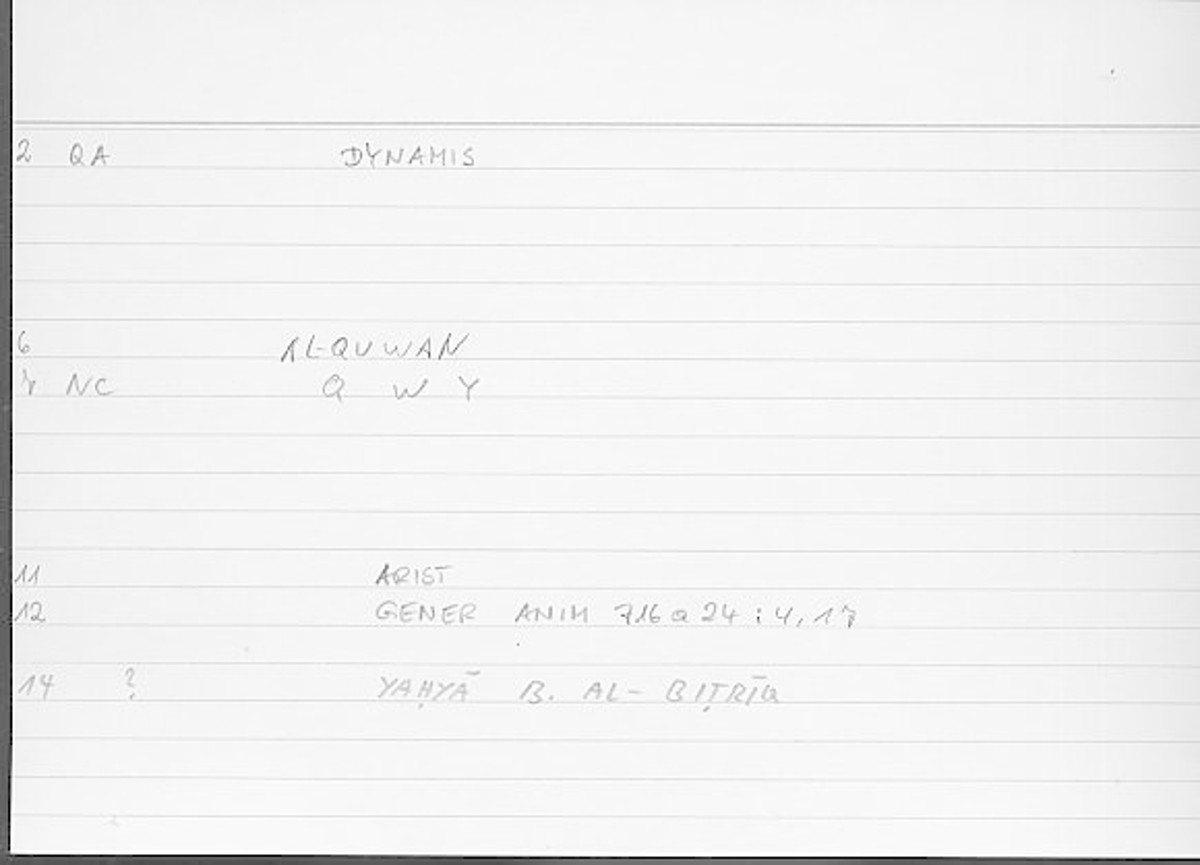 2 QA DYNAMIS
6 AL-QUWAN
7 NC Q W Y
11 ARIST
12 GENER ANIM 716 a 24 : 4, 17
14 ? YAḤYĀ B. AL-BIṬRĪQ